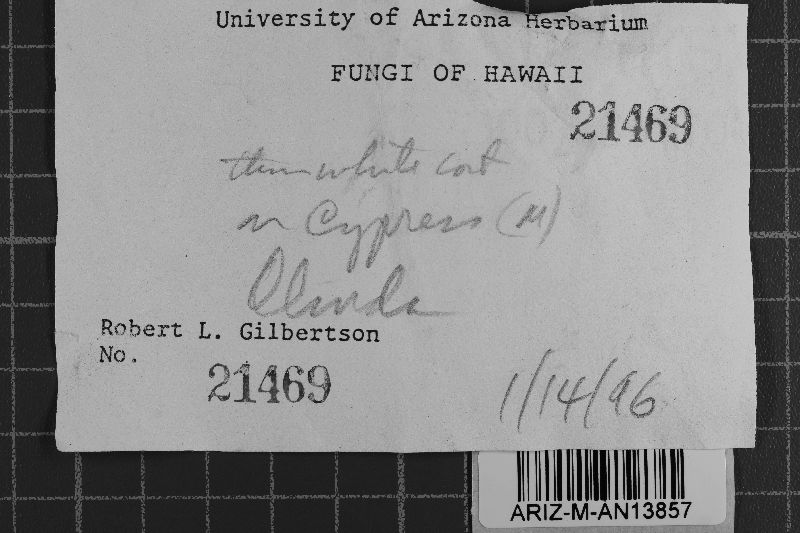 University of Arizona Herbarium
FUNGI OF HAWAII
21469
thin white cort
on Cypress (M)
Olinda
Robert L. Gilbertson
No.
21469
1/14/96
ARIZ-M-AN13857